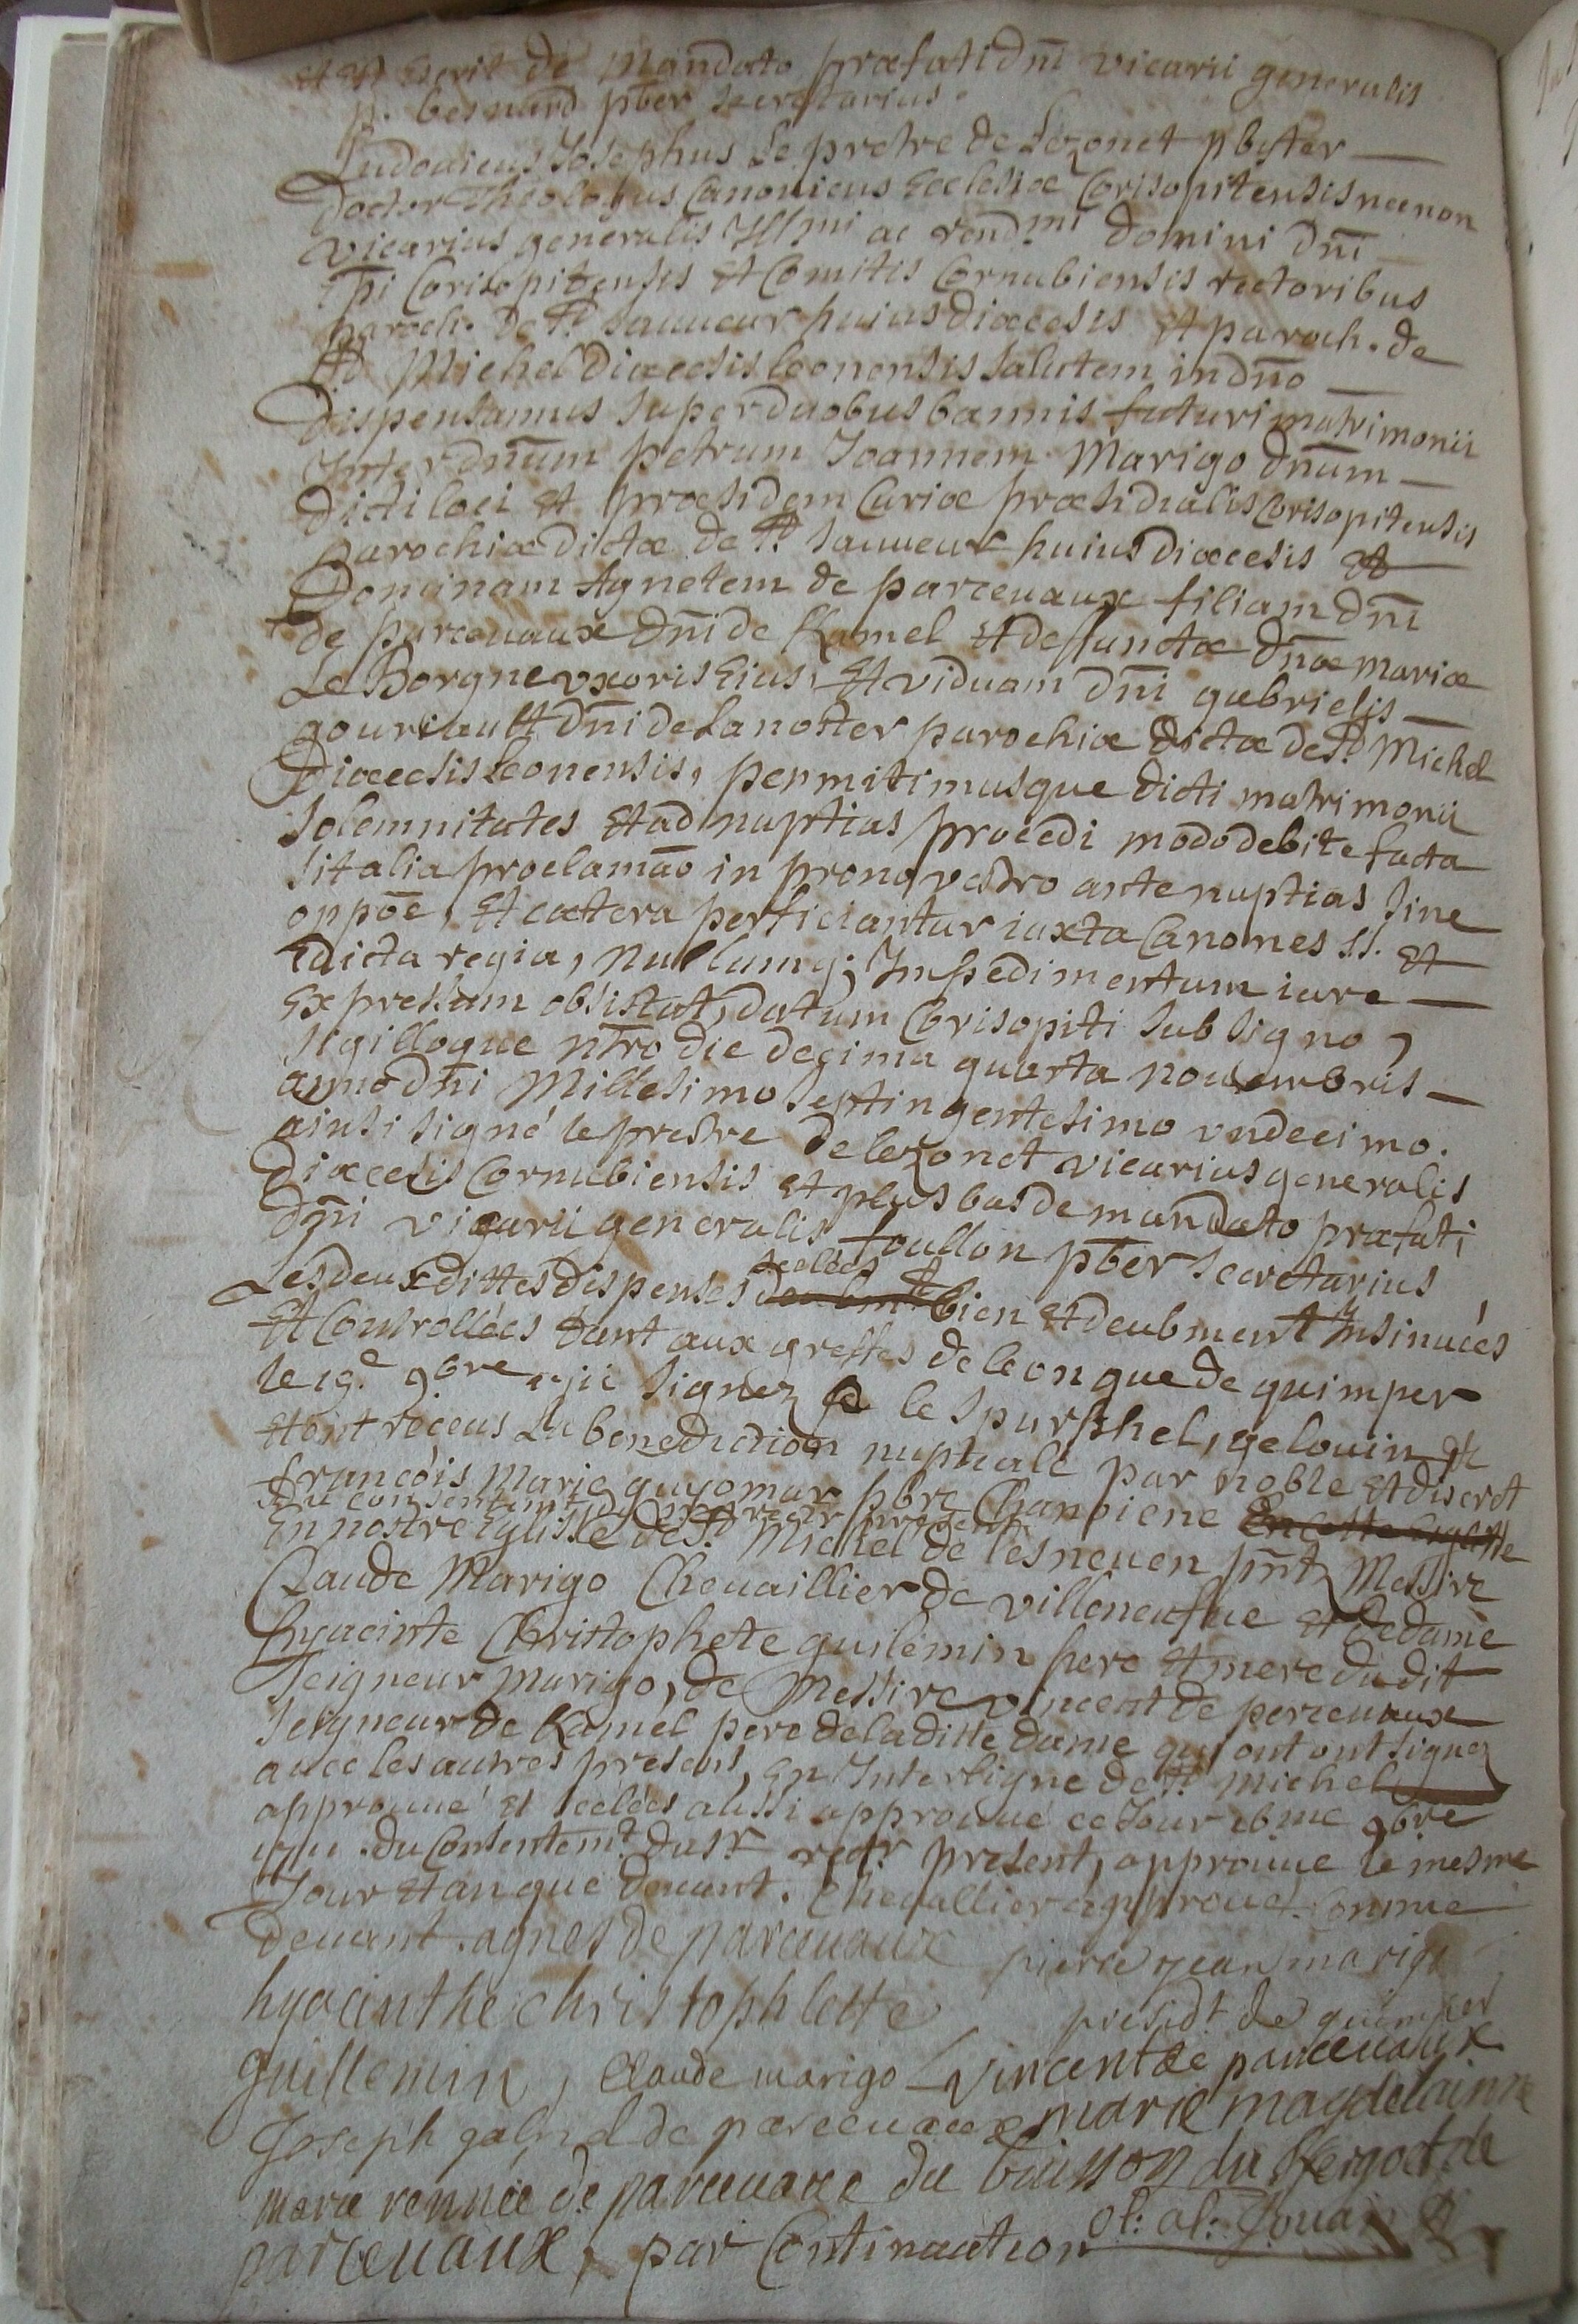 de mandato præfati dni vicarii generalis
p. besnard pber secretarius.
Ludovicus Iosephus Le prestre de Lezonet pbyter
doctor Theologus Canonicus Ecclesiæ Corisopitensis necnon
vicarius generalis Illmi ac rendmi domini dni
Epi Corisopitensis et Comitis Cornubiensis rectoribus
paroch. de st sauueur huius diœcesis et paroch. de
st Michel diæcesis leonensis salutem in dno
dispensamus super duobus bannis futuri matrimonii
Inter dnum petrum Ioannem Marigo dnum
dicti loci et præsidem Curiæ præsidialis Corisopitensis
parochiæ dictæ de st sauueur huius diœcesis et
Dominam Agnetem de parceuaux filiam dni
de parceuaux dni de Kamel et deffunctæ dnæ mariæ
Le Borgne vxoris Eius, Et viduam dni gabrielis
gouricault dni de Lanoster parochiæ dictæ de st Michel
Diæcesis leonensis, permitimusque dicti matrimonii
solemnitates et ad nuptias procedi modo debite facta
sit alia proclamaõ in prono vestro ante nuptias sine
oppoẽ, et cættera perficiantur iuxta Canones ss. et
Edicta regia, nullumq; Impedimentum iure
Expressum obsistat, datum Corisopiti sub signo
sigilloque ntro die decima quarta nouembris
anno dni Millesimo septingentesimo vndecimo.
ainsi signé le prestre de lezonet vicarius generalis
diæcesis Cornubiensis et plus bas de mandato præfati
dni vicarii generalis foullon pber secretarius
scelées
Les deux dittes dispenses bien et deubment Insinuées
et Controllées tant aux greffes de leon que de quimper
le 19e 9bre signez le spurphel, gelouin et
et ont receus La benediction nuptiale par noble et discret
francois Marie guyomar pbre Chanoiene En cette Eglisse
du consentemt du sr rectr present
En nostre Eglisse de st Michel de lesneuen pnt Messire
Claude Marigo Cheuaillier de villeneufue et de dame
hyacinte Christophete guilemin pere et mere du dit
seigneur marigo, de Messire vincent de perceuaux
seigneur de Kamel pere de la ditte dame qui ont ont signez
auec les autres presens, En Interligne de st Michel
approuué et scélées aussi approuué ce Iour 9bre
du Consentemt du sr rectr present, approuue le mesme
Iour et an que deuant. Cheuallier approuué Comme
deuant. agnes de parceuaux pierre jean marigo
hyacinthe christophlette presidt de quimper
guillemin, Claude marigo vincent de parceuaux
Joseph gabriel de parceuaux marie magdelainne
marie rennée de parceuaux du buisson du
parceuaux, par Continuation